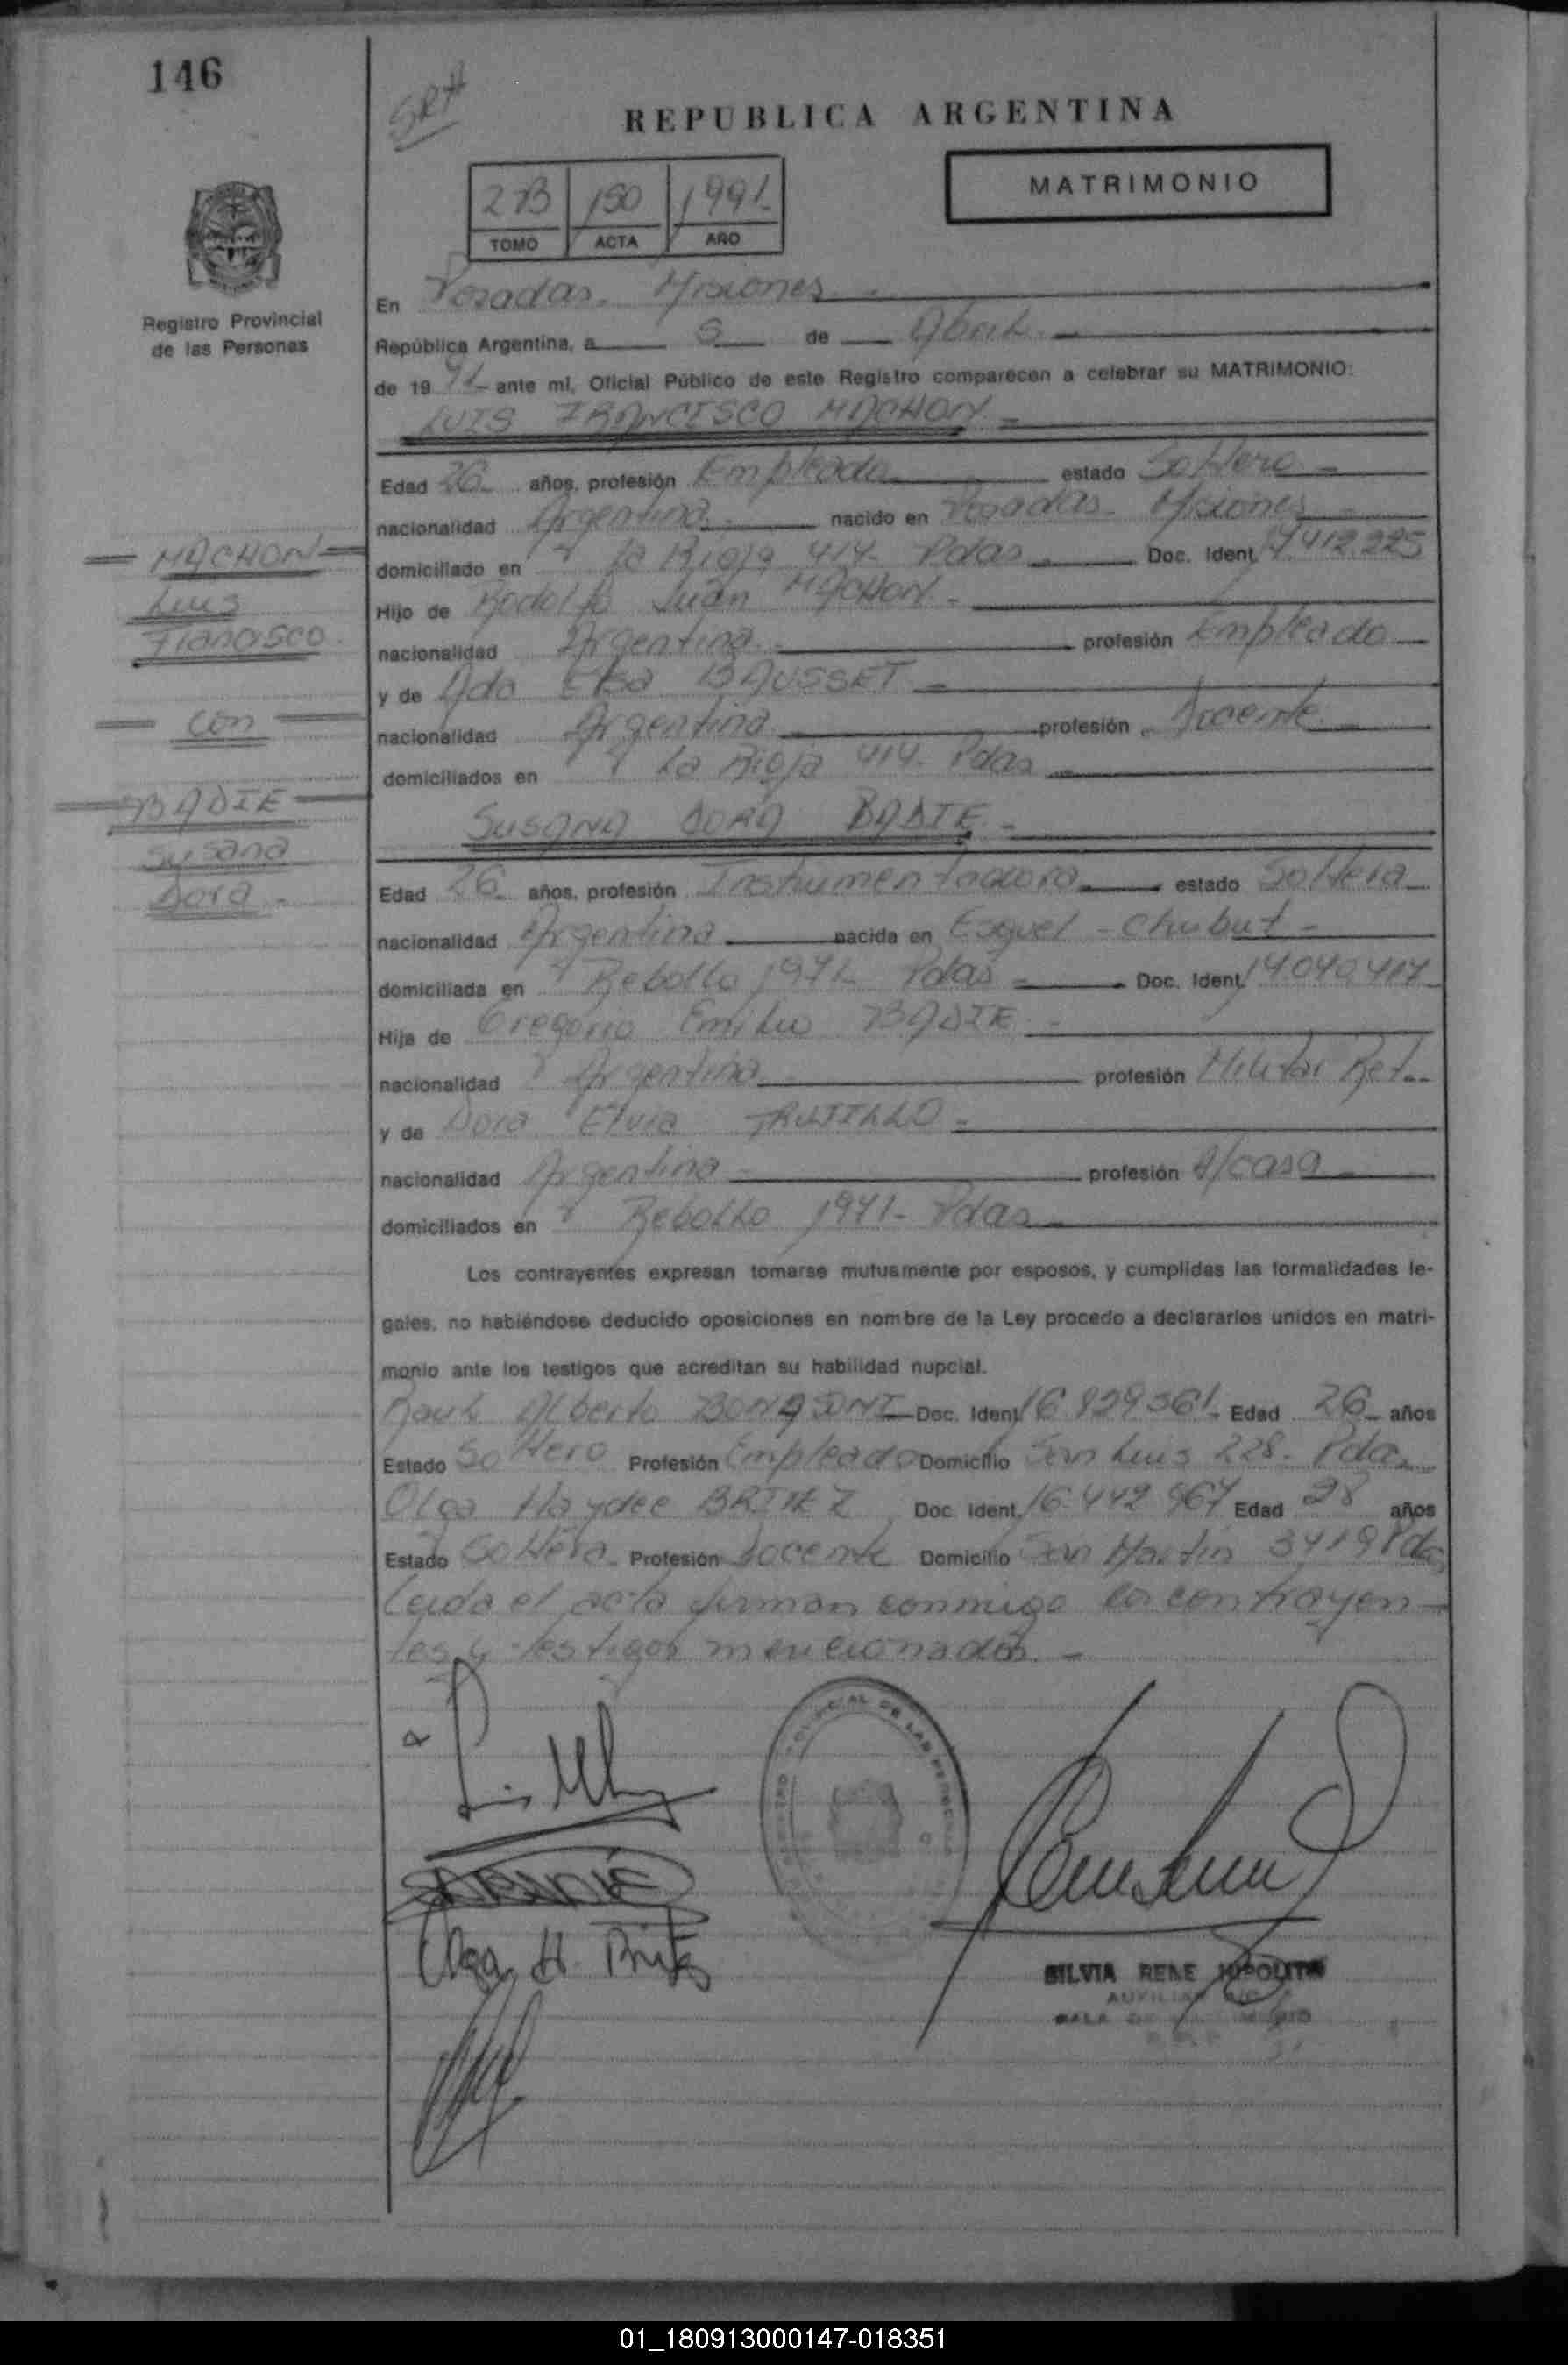 146
SRH
REPUBLICA ARGENTINA
MATRIMONIO
2B 150 1991
TOMO ACTA AÑO
Registro Provincial
de las Personas
En Posadas. Misiones
República Argentina, a 5 de Abril
de 1991 ante mí, Oficial Público de este Registro comparecen a celebrar su MATRIMONIO:
LUIS FRANCISCO MACHON
Edad 26 años, profesión Empleado estado Soltero
nacionalidad Argentina nacido en Posadas Misiones
domiciliado en La Rioja 414 Pdas Doc. Ident. 17.412.225
Hijo de Rodolfo Juan MACHON
nacionalidad Argentina profesión Empleado
y de Ada Elsa BAUSSET
nacionalidad Argentina profesión Docente
domiciliados en La Rioja 414 Pdas
SUSANA DORA BADIE
Edad 26 años, profesión Instrumentadora estado Soltera
nacionalidad Argentina nacida en Esquel - Chubut
domiciliada en Rebollo 1971 Pdas Doc. Ident. 17.070.417
Hija de Gregorio Emilio BADIE
nacionalidad Argentina profesión Militar Ret.
y de Dora Elvia TRUJILLO
nacionalidad Argentina profesión A/casa
domiciliados en Rebollo 1971 - Pdas
MACHON
Luis
Francisco
con
BADIE
Susana
Dora
Los contrayentes expresan tomarse mutuamente por esposos, y cumplidas las formalidades le-
gales, no habiéndose deducido oposiciones en nombre de la Ley procedo a declararlos unidos en matri-
monio ante los testigos que acreditan su habilidad nupcial.
Raul Alberto Doc. Ident. 16.829.561 Edad 26 años
Estado Soltero Profesión Empleado Domicilio San Luis 228 - Pdas
Olga Haydee BRITEZ Doc. Ident. 16.442.967 Edad 28 años
Estado Soltera Profesión Docente Domicilio San Martin 3419 Pdas
Leida el acta firman conmigo los contrayen-
tes y testigos mencionados. -
Olga H. Britez
SILVIA RENE HIPOLITO
01_180913000147-018351